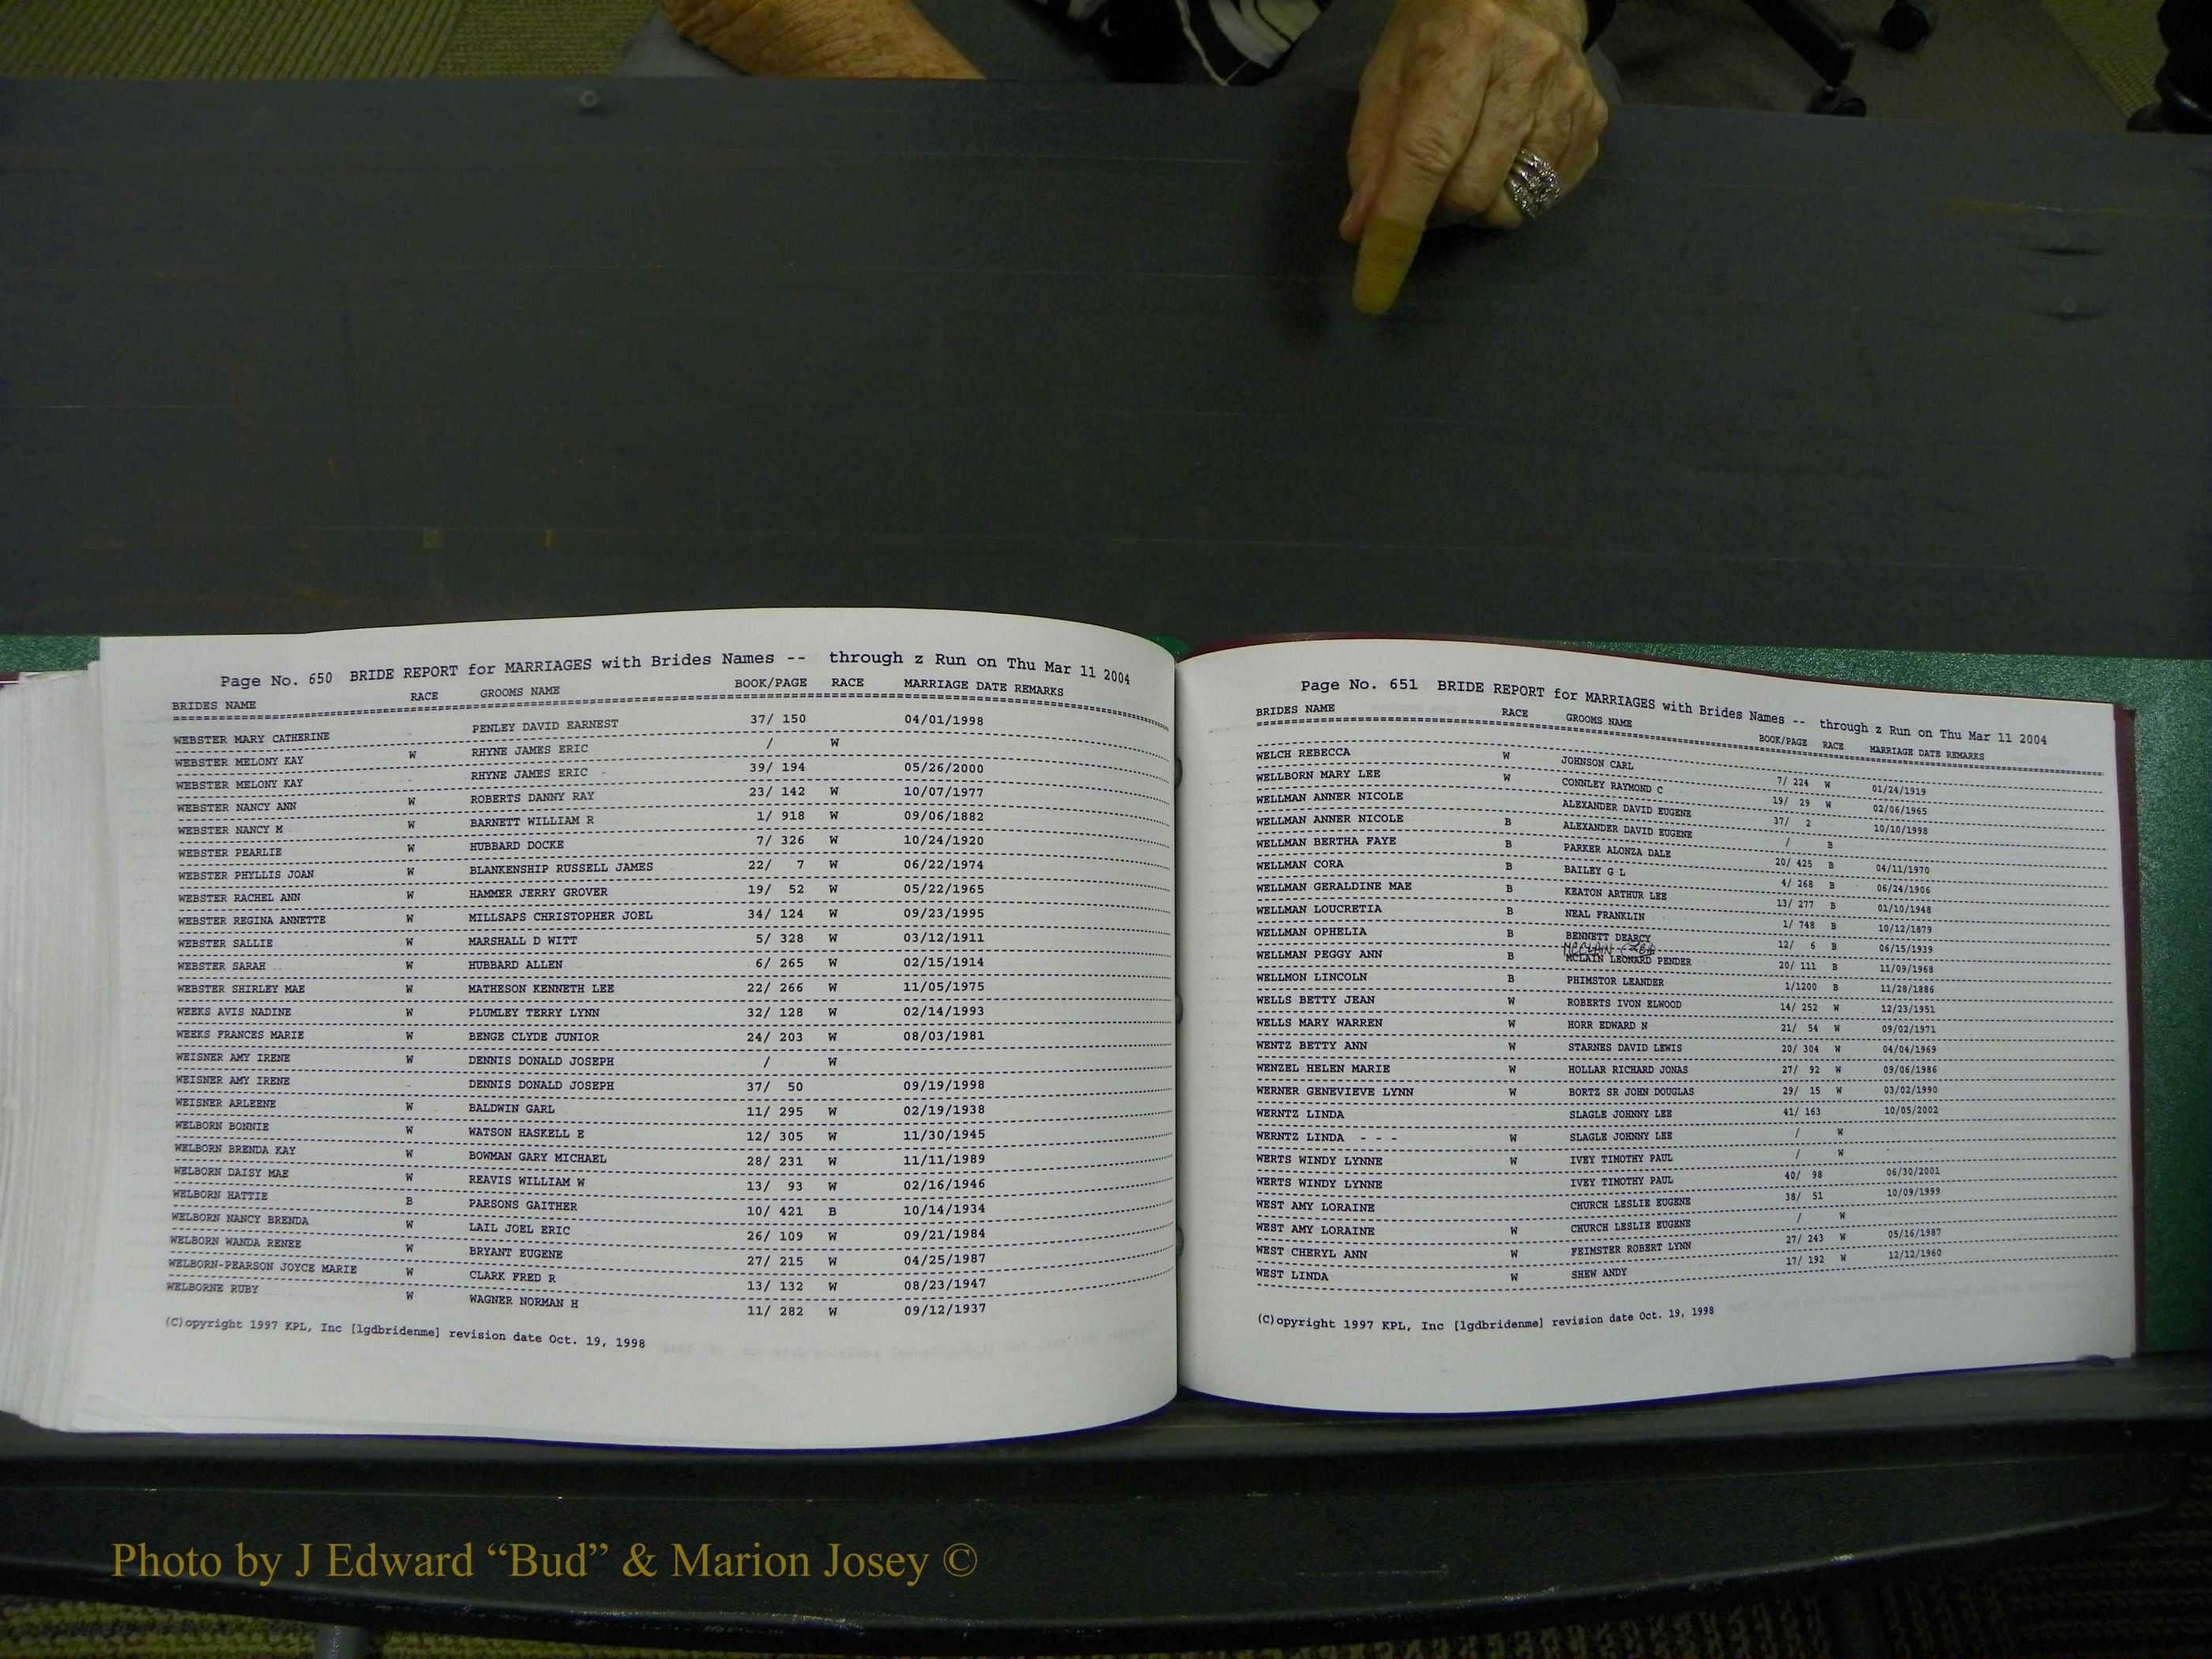 Page No. 650 BRIDE REPORT for MARRIAGES with Brides Names -- through z Run on Thu Mar 11 2004
BRIDES NAME RACE GROOMS NAME BOOK/PAGE RACE MARRIAGE DATE REMARKS
WEBSTER MARY CATHERINE PENLEY DAVID EARNEST 37/ 150 04/01/1998
WEBSTER MELONY KAY W RHYNE JAMES ERIC / W
WEBSTER MELONY KAY RHYNE JAMES ERIC 39/ 194 05/26/2000
WEBSTER NANCY ANN W ROBERTS DANNY RAY 23/ 142 W 10/07/1977
WEBSTER NANCY M W BARNETT WILLIAM R 1/ 918 W 09/06/1882
WEBSTER PEARLIE W HUBBARD DOCKE 7/ 326 W 10/24/1920
WEBSTER PHYLLIS JOAN W BLANKENSHIP RUSSELL JAMES 22/ 7 W 06/22/1974
WEBSTER RACHEL ANN W HAMMER JERRY GROVER 19/ 52 W 05/22/1965
WEBSTER REGINA ANNETTE W MILLSAPS CHRISTOPHER JOEL 34/ 124 W 09/23/1995
WEBSTER SALLIE W MARSHALL D WITT 5/ 328 W 03/12/1911
WEBSTER SARAH W HUBBARD ALLEN 6/ 265 W 02/15/1914
WEBSTER SHIRLEY MAE W MATHESON KENNETH LEE 22/ 266 W 11/05/1975
WEEKS AVIS NADINE W PLUMLEY TERRY LYNN 32/ 128 W 02/14/1993
WEEKS FRANCES MARIE W BENGE CLYDE JUNIOR 24/ 203 W 08/03/1981
WEISNER AMY IRENE W DENNIS DONALD JOSEPH / W
WEISNER AMY IRENE DENNIS DONALD JOSEPH 37/ 50 09/19/1998
WEISNER ARLEENE W BALDWIN GARL 11/ 295 W 02/19/1938
WELBORN BONNIE W WATSON HASKELL E 12/ 305 W 11/30/1945
WELBORN BRENDA KAY W BOWMAN GARY MICHAEL 28/ 231 W 11/11/1989
WELBORN DAISY MAE W REAVIS WILLIAM W 13/ 93 W 02/16/1946
WELBORN HATTIE B PARSONS GAITHER 10/ 421 B 10/14/1934
WELBORN NANCY BRENDA W LAIL JOEL ERIC 26/ 109 W 09/21/1984
WELBORN WANDA RENEE W BRYANT EUGENE 27/ 215 W 04/25/1987
WELBORN-PEARSON JOYCE MARIE W CLARK FRED R 13/ 132 W 08/23/1947
WELBORNE RUBY W WAGNER NORMAN H 11/ 282 W 09/12/1937
(C)opyright 1997 KPL, Inc [lgdbridenme] revision date Oct. 19, 1998
Page No. 651 BRIDE REPORT for MARRIAGES with Brides Names -- through z Run on Thu Mar 11 2004
BRIDES NAME RACE GROOMS NAME BOOK/PAGE RACE MARRIAGE DATE REMARKS
WELCH REBECCA W JOHNSON CARL 7/ 224 W 01/24/1919
WELLBORN MARY LEE W CONNLEY RAYMOND C 19/ 29 W 02/06/1965
WELLMAN ANNER NICOLE ALEXANDER DAVID EUGENE 37/ 2 10/10/1998
WELLMAN ANNER NICOLE B ALEXANDER DAVID EUGENE / B
WELLMAN BERTHA FAYE B PARKER ALONZA DALE 20/ 425 B 04/11/1970
WELLMAN CORA B BAILEY G L 4/ 268 B 06/24/1906
WELLMAN GERALDINE MAE B KEATON ARTHUR LEE 13/ 277 B 01/10/1948
WELLMAN LOUCRETIA B NEAL FRANKLIN 1/ 748 B 10/12/1879
WELLMAN OPHELIA B BENNETT DEARCY 12/ 6 B 06/15/1939
WELLMAN PEGGY ANN B MCLAIN LEONARD PENDER 20/ 111 B 11/09/1968
WELLMON LINCOLN B PHIMSTOR LEANDER 1/1200 B 11/28/1886
WELLS BETTY JEAN W ROBERTS IVON ELWOOD 14/ 252 W 12/23/1951
WELLS MARY WARREN W HORR EDWARD N 21/ 54 W 09/02/1971
WENTZ BETTY ANN W STARNES DAVID LEWIS 20/ 304 W 04/04/1969
WENZEL HELEN MARIE W HOLLAR RICHARD JONAS 27/ 92 W 09/06/1986
WERNER GENEVIEVE LYNN W BORTZ SR JOHN DOUGLAS 29/ 15 W 03/02/1990
WERNTZ LINDA SLAGLE JOHNNY LEE 41/ 163 10/05/2002
WERNTZ LINDA - - - W SLAGLE JOHNNY LEE / W
WERTS WINDY LYNNE W IVEY TIMOTHY PAUL / W
WERTS WINDY LYNNE IVEY TIMOTHY PAUL 40/ 98 06/30/2001
WEST AMY LORAINE CHURCH LESLIE EUGENE 38/ 51 10/09/1999
WEST AMY LORAINE W CHURCH LESLIE EUGENE / W
WEST CHERYL ANN W FEIMSTER ROBERT LYNN 27/ 243 W 05/16/1987
WEST LINDA W SHEW ANDY 17/ 192 W 12/12/1960
(C)opyright 1997 KPL, Inc [lgdbridenme] revision date Oct. 19, 1998
Photo by J Edward “Bud” & Marion Josey ©